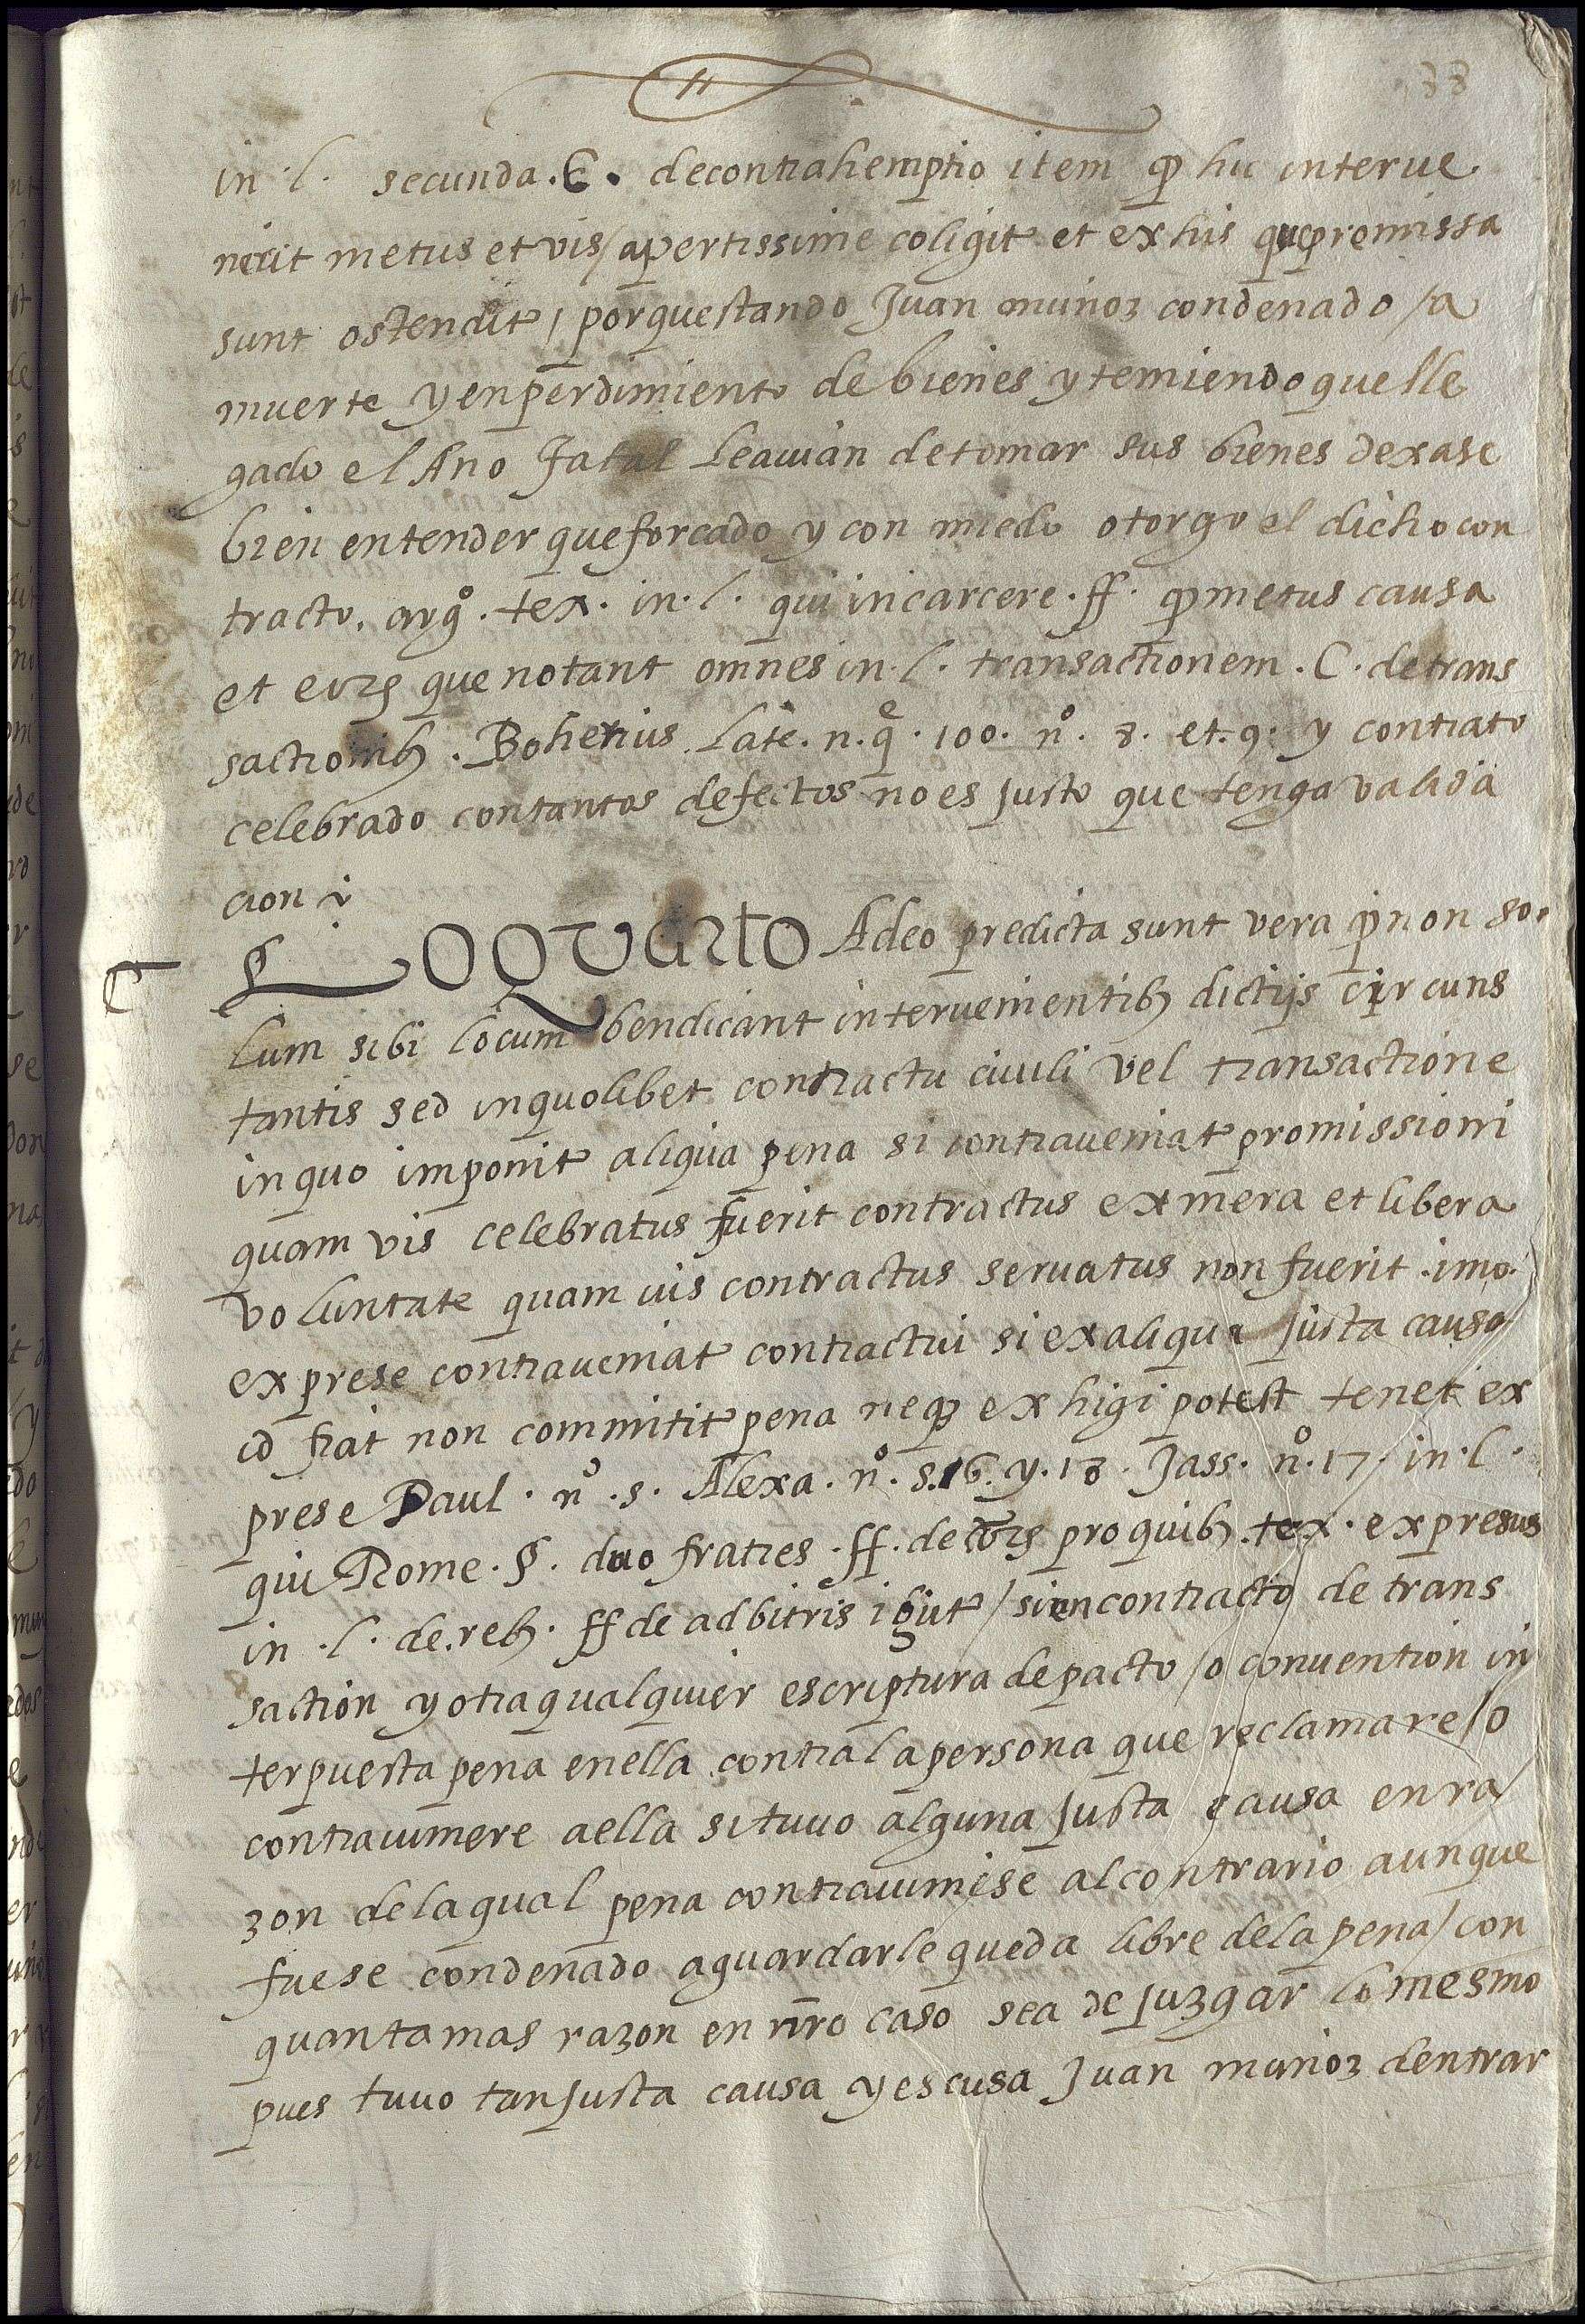 138
in l. secunda. C. decontrahemptio item qp hic interue
nerit metus et vis / apertissime coligit et ex his que premissa
sunt ostendit / porquestando Juan muñoz condenado / a
muerte y enperdimiento de bienes y temiendo que lle
gado el Año fatal Leauian de tomar sus bienes dexase
bien entender que forcado y con miedo otorgo el dicho con
tracto. argº. tex. in. l. qui in carcere. ff. qp metus causa
et que notant omnes in. l. transactionem. C. de trans
sactionib. Boherius Late. n. qe. 100. nº. 8. et. 9. y contrato
celebrado contantos defectos no es Justo que tenga valida
cion
LO QVarto Adeo predicta sunt vera qp non so
lum sibi locum bendicant interuenientib dictijs circuns
tantis sed inquolibet contractu ciuili vel transactione
in quo imponit aliqua pena si contraueniat promissioni
quam vis celebratus fuerit contractus ex mera et libera
voluntate quam uis contractus seruatus non fuerit imo
ex prese contraueniat contractui si ex aliqua Justa causa
id fiat non commitit pena neqp ex higi potest tenet ex
prese Paul. nº. s. Alexa. nº. s. 16. y. 18. Jass. nº. 17. in. l.
qui Rome. §. duo fratres. ff. de pro quib. tex. expresus
in. l. de. reb. ff de adbitris igiut / si en contracto de trans
saction y otra qualquier escriptura de pacto / o conuention in
terpuesta pena en ella contra la persona que reclamare / o
contrauiniere aella si tuuo alguna Justa causa en ra
zon de la qual pena contrauiniese al contrario aunque
fuese condenado aguardarle queda libre de la pena / con
quanta mas razon en nro caso sea de Juzgar lo mesmo
pues tuuo tan Justa causa y escusa Juan muñoz dentrar